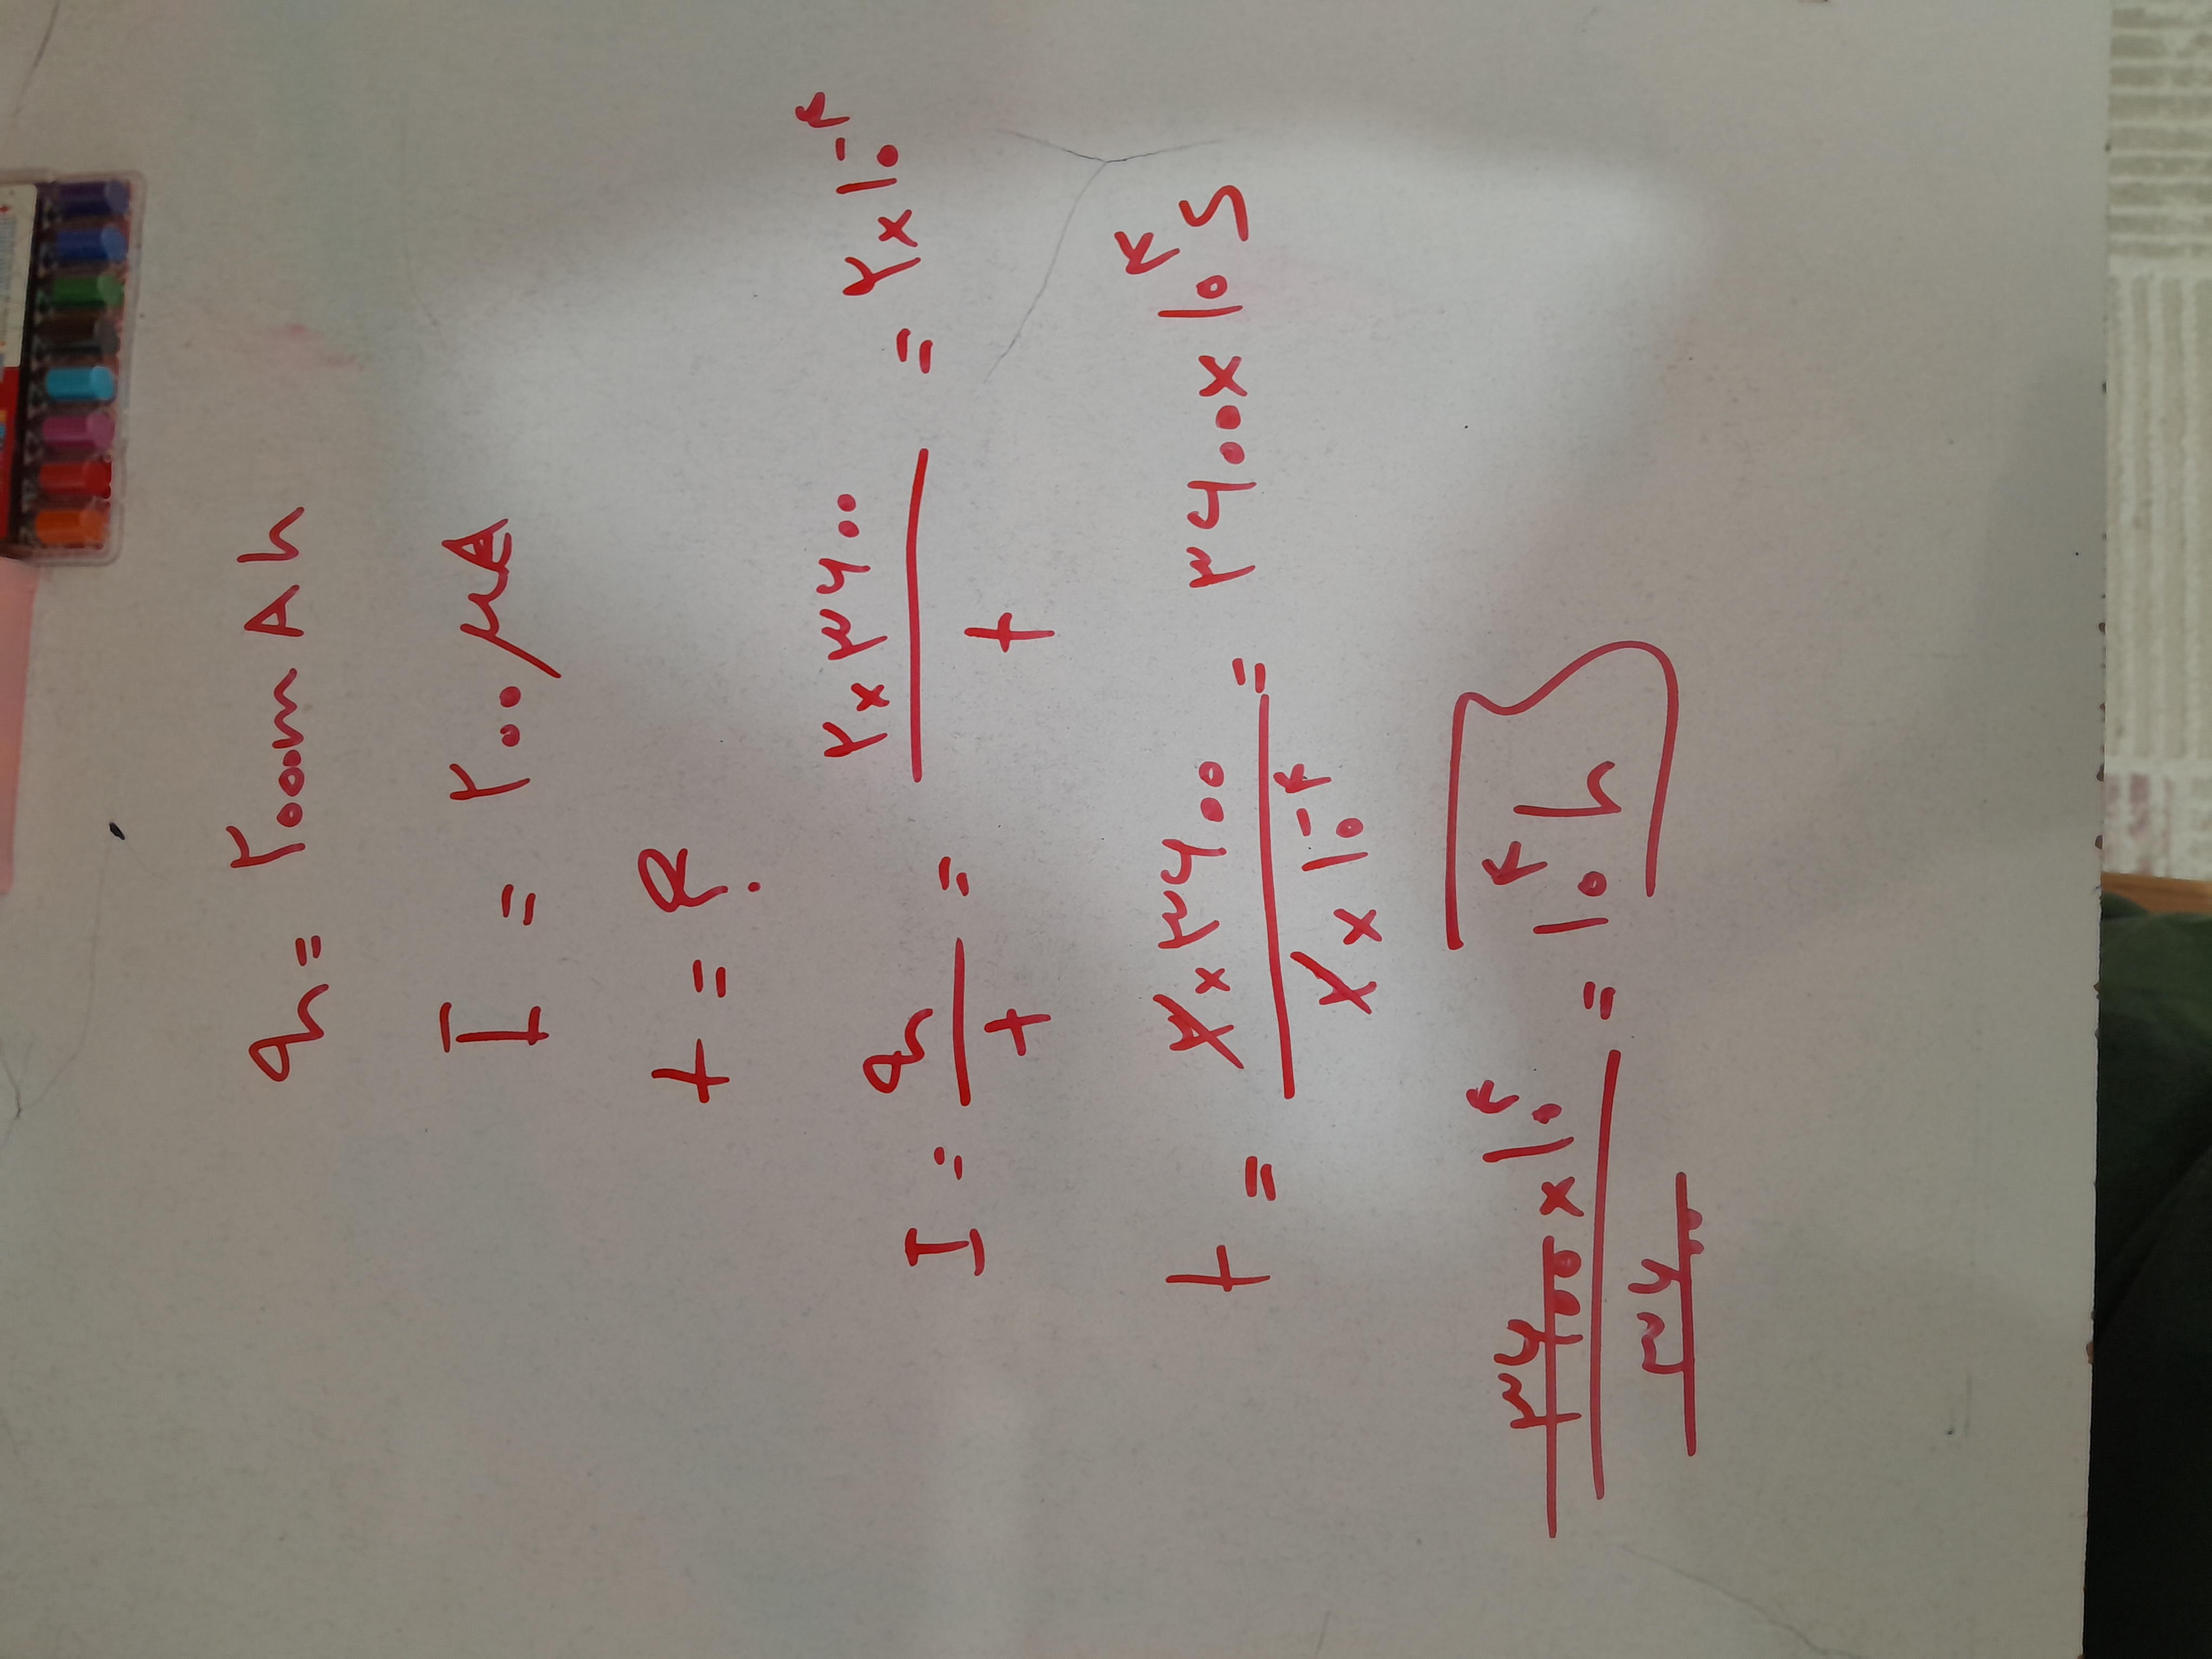 q = ۲۰۰۰mAh
I = ۲۰۰ μA
t = ?
I = q/t = ۲×۳۶۰۰/t = ۲×۱۰⁻⁴
t = ۲×۳۶۰۰/۲×۱۰⁻⁴ = ۳۶۰۰×۱۰⁴ S
۳۶۰۰×۱۰⁴/۳۶۰۰ = ۱۰⁴ h